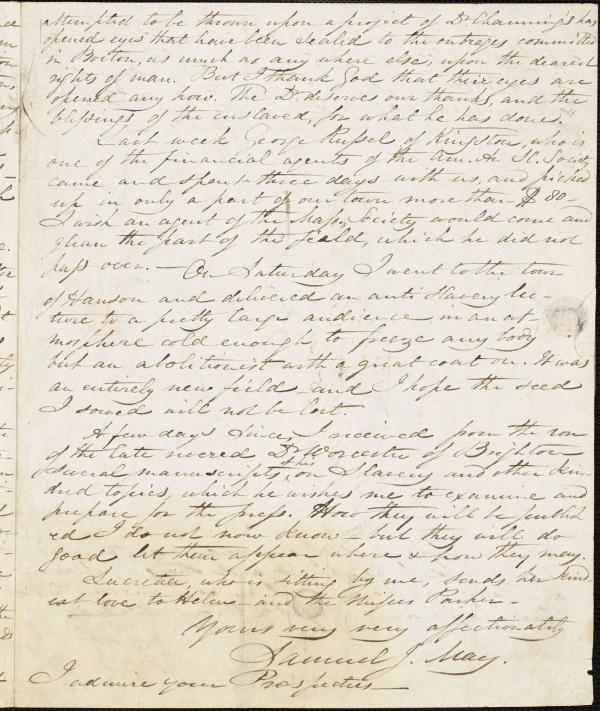 attempted to be thrown upon a project of Dr Channing's has
opened eyes that have been sealed to the outrages committed
in Boston, as much as any where else, upon the dearest
rights of man. But I thank God that their eyes are
opened any how. The Dr. deserves our thanks, and the
blessings of the enslaved, for what he has done."
Last week George Russel of Kingston, who is
one of the financial agents of the Am. An. Sl. Society
came and spent three days with us, and picked
up in only a part of our town more than $80-
I wish an agent of the Mass. Society would come and
glean the part of the field, which he did not
pass over. — On Saturday I went to the town
of Hanson and delivered an anti Slavery lec-
ture to a pretty large audience in an at
mosphere cold enough to freeze any body
but an abolitionist with a great coat on. It was
an entirely new field - and I hope the seed
I sowed will not be lost.
A few days since, I received from the son
of the late revered Dr Worcester of Brighton
several manuscripts of his on Slavery and other kin-
dred topics, which he wishes me to examine and
prepare for the press. How they will be publish
ed I do not now know - but they will do
good let them appear where & how they may.
Lucretia, who is sitting by me, sends her kind-
est love to Helen - and the Misses Parker -
Yours very very affectionately
Samuel J. May.
I admire your Prospectus -